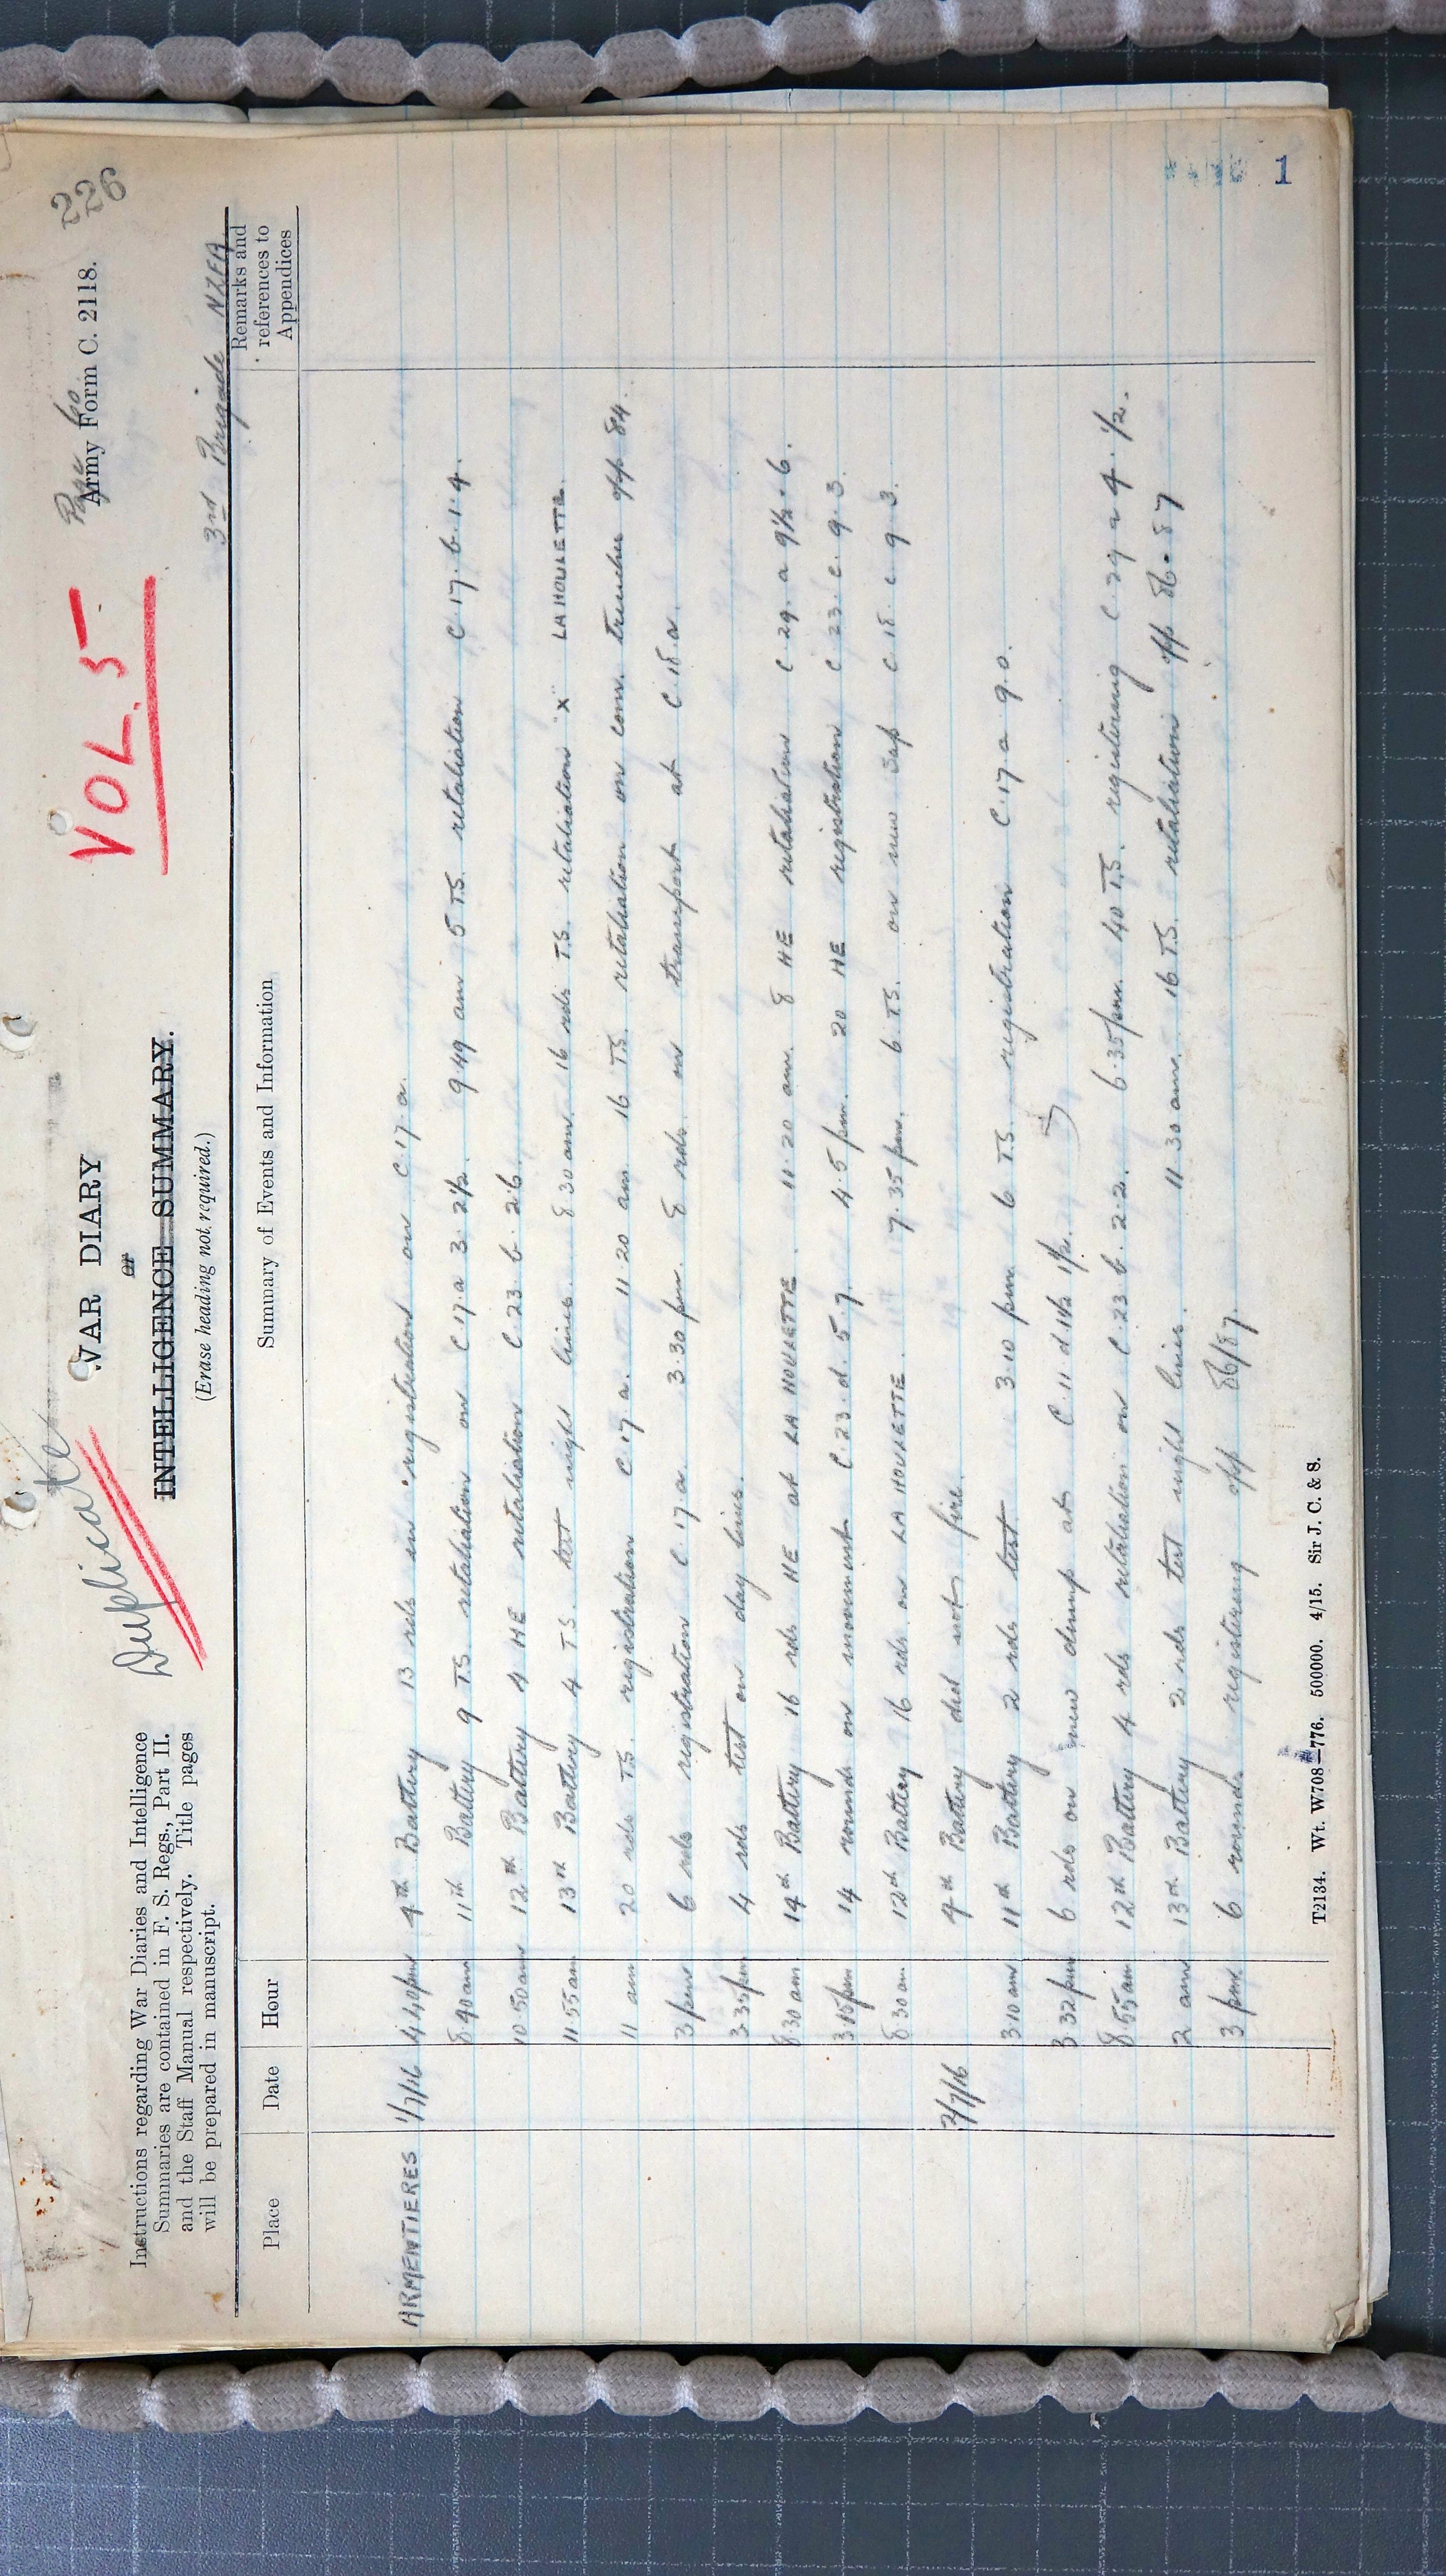 226
Page 60
Army Form C. 2118.
VOL. 5
Duplicate
WAR DIARY
or
INTELLIGENCE SUMMARY.
(Erase heading not required.)
3rd Brigade NZFA
Instructions regarding War Diaries and Intelligence
Summaries are contained in F. S. Regs., Part II.
and the Staff Manual respectively. Title pages
will be prepared in manuscript.
Place Date Hour Summary of Events and Information Remarks and references to Appendices
ARMENTIERES 1/7/16 4.40 pm 4th Battery 13 rds in registration on C.17.a.
8.40 am 11th Battery 9 T.S. retaliation on C.17.a 3.2½. 9.49 am 5 T.S. retaliation C.17.b.1.4.
10.50 am 12th Battery 4 HE retaliation C.23.b.2.6.
11.55 am 13th Battery 4 T.S. test night lines. 8.30 am. 16 rds T.S. retaliation "X" LA HOULETTE.
11 am 20 rds T.S. registration C.17.a. 11.20 am 16 T.S. retaliation on com. trenches opp 84.
3 pm 6 rds registration C.17.a. 3.30 pm. 8 rds. on transport at C.18.a.
3.35 pm 4 rds test on day lines.
8.30 am 14th Battery 16 rds HE at LA HOULETTE. 11.20 am. 8 HE retaliation C.29.a 9½.6.
3.15 pm 14 rounds on movement C.23.d.5.7. 4.5 pm. 20 HE registration C 23.c.9.3.
8.30 am 12th Battery 16 rds. on LA HOULETTE. 7.35 pm. 6 T.S. on new Sap C.18.c 9.3.
2/7/16 4th Battery did not fire.
3.10 am 11th Battery 2 rds test. 3.10 pm. 6 T.S. registration C.17.a 9.0.
3.32 pm 6 rds on new dump at C.11.d.1½ ½.
8.55 am 12th Battery 4 rds retaliation on C.23.b.2.2. 6.35 pm. 40 T.S. registering C.29 a 4.½.
2 am 13th Battery 2 rds test night lines. 11.30 am. 16 T.S. retaliation opp 86-87
3 pm. 6 rounds registering opp 86/87.
T2134. Wt. W708—776. 500000. 4/15. Sir J. C. & S.
1